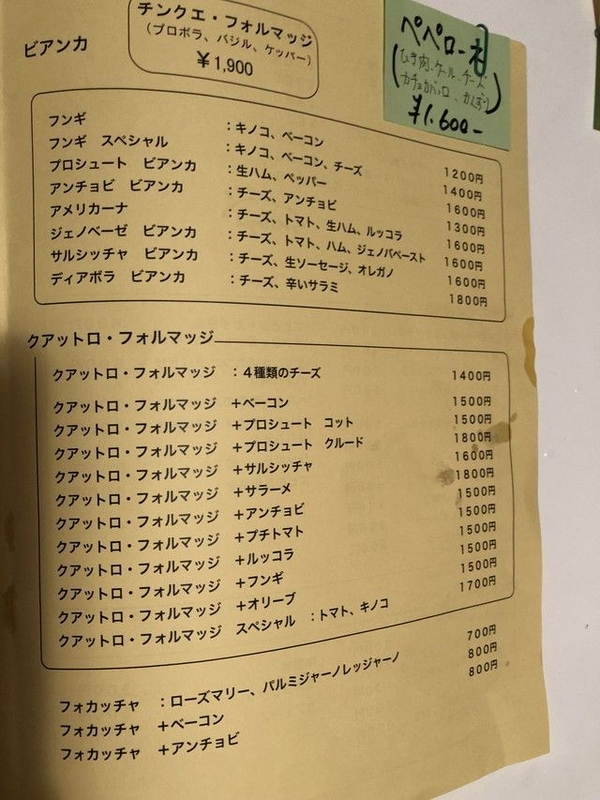 ビアンカ
チンクエ・フォルマッジ
（プロボラ、バジル、ケッパー）
￥1,900
ペペローネ
(ひき肉、ケール、チーズ
カチョカバッロ、かんずり)
¥1.600-
フンギ ：キノコ、ベーコン 1200円
フンギ スペシャル ：キノコ、ベーコン、チーズ 1400円
プロシュート ビアンカ ：生ハム、ペッパー 1600円
アンチョビ ビアンカ ：チーズ、アンチョビ 1300円
アメリカーナ ：チーズ、トマト、生ハム、ルッコラ 1600円
ジェノベーゼ ビアンカ ：チーズ、トマト、ハム、ジェノバペースト 1600円
サルシッチャ ビアンカ ：チーズ、生ソーセージ、オレガノ 1600円
ディアボラ ビアンカ ：チーズ、辛いサラミ 1800円
クアットロ・フォルマッジ
クアットロ・フォルマッジ ：４種類のチーズ 1400円
クアットロ・フォルマッジ ＋ベーコン 1500円
クアットロ・フォルマッジ ＋プロシュート コット 1500円
クアットロ・フォルマッジ ＋プロシュート クルード 1800円
クアットロ・フォルマッジ ＋サルシッチャ 1600円
クアットロ・フォルマッジ ＋サラーメ 1800円
クアットロ・フォルマッジ ＋アンチョビ 1500円
クアットロ・フォルマッジ ＋プチトマト 1500円
クアットロ・フォルマッジ ＋ルッコラ 1500円
クアットロ・フォルマッジ ＋フンギ 1500円
クアットロ・フォルマッジ ＋オリーブ 1500円
クアットロ・フォルマッジ スペシャル ：トマト、キノコ 1700円
フォカッチャ ：ローズマリー、パルミジャーノレッジャーノ 700円
フォカッチャ ＋ベーコン 800円
フォカッチャ ＋アンチョビ 800円